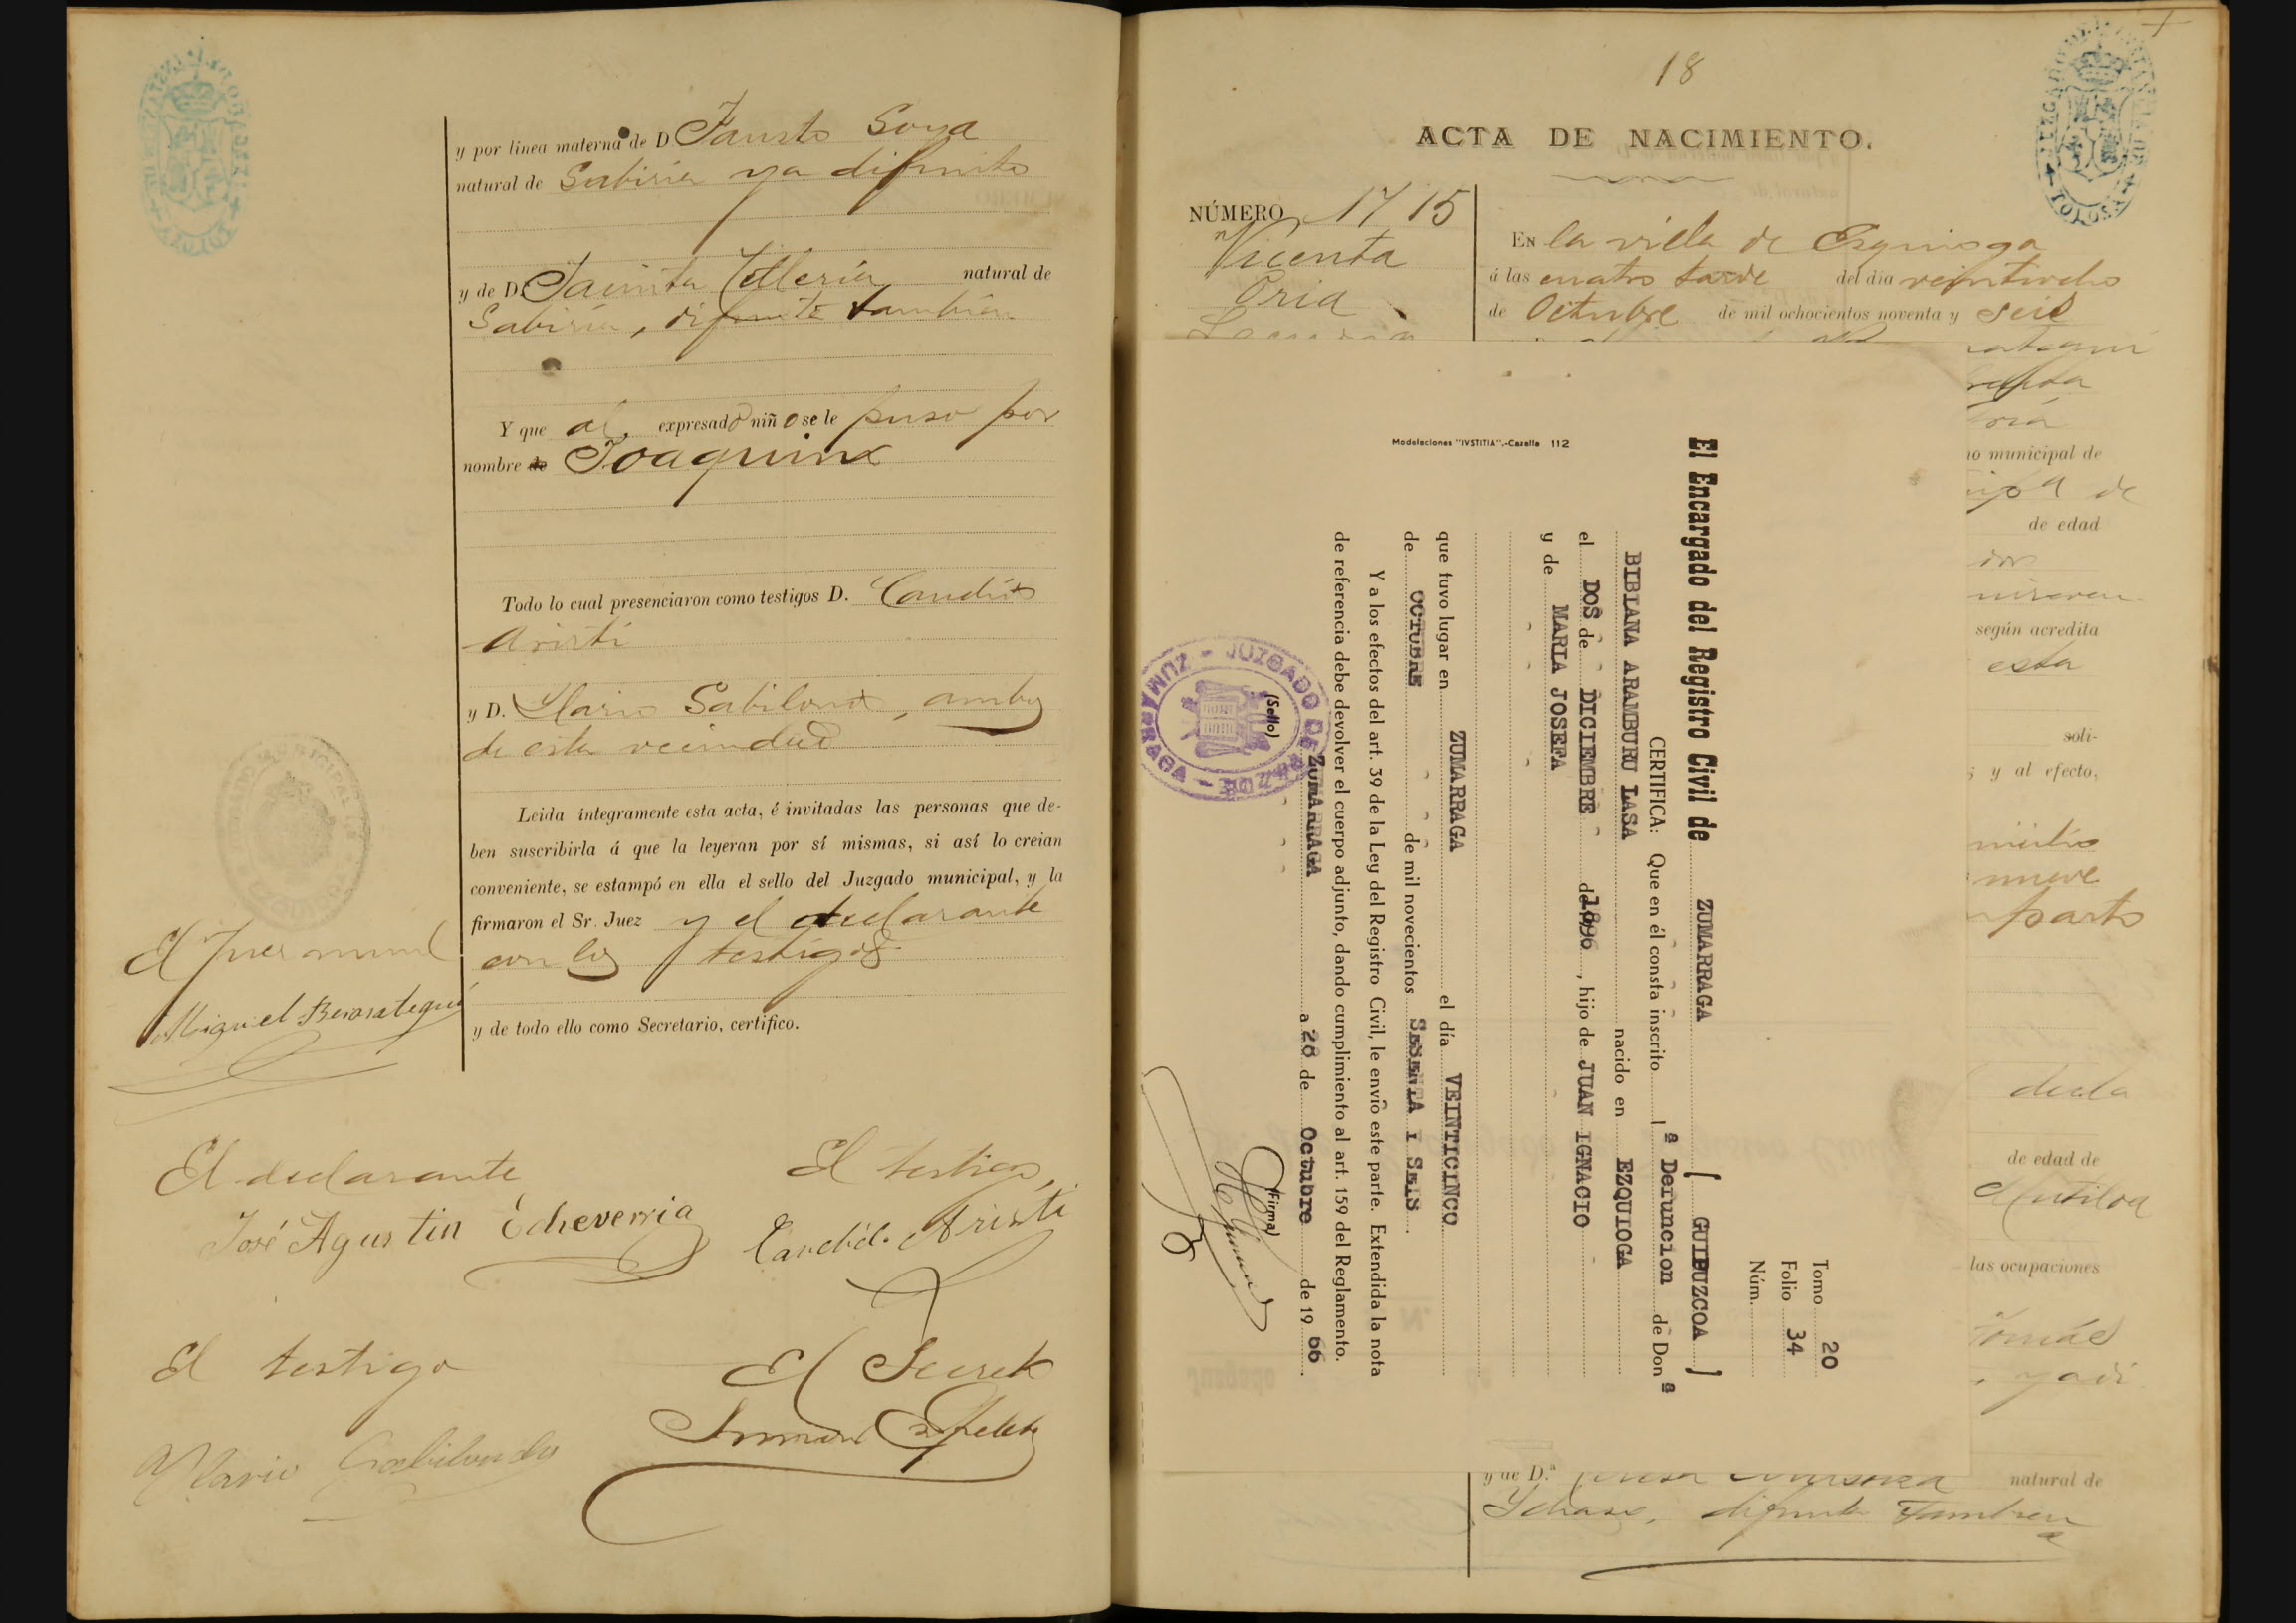 y por línea materna de D Fausto Soya
natural de Gabiria ya difunto
y de D. Jacinta Telleria natural de
Gabiria, difunta también
Y que al expresado niño se le puso por
nombre de Joaquin
Todo lo cual presenciaron como testigos D. Candido
Aristi
y D. Ylario Gabilondo, ambos
de esta vecindad
Leida íntegramente esta acta, é invitadas las personas que de-
ben suscribirla á que la leyeran por sí mismas, si así lo creían
conveniente, se estampó en ella el sello del Juzgado municipal, y la
firmaron el Sr. Juez y el declarante
con los testigos
y de todo ello como Secretario, certifico.
El Juez muni
Miguel Berasategui
El declarante
José Agustin Echeverria
El testigo,
Candido Aristi
El testigo
Ylario Gabilondo
El Secret
18
ACTA DE NACIMIENTO.
NÚMERO 17 15
Vicenta
Oria
EN la villa de Ezquioga
á las cuatro tarde del día veintiocho
de Octubre de mil ochocientos noventa y seis
no municipal de
de
de edad
según acredita
esta
soli-
y al efecto,
nueve
parto
decla
de edad de
Mutiloa
las ocupaciones
Tomás
y de D.ª natural de
Ychaso, difunta tambien
Tomo 20
Folio 34
Núm.
El Encargado del Registro Civil de ZUMARRAGA ( GUIPUZCOA )
CERTIFICA: Que en él consta inscrito lª Defuncion de Don ª
BIBIANA ARAMBURU LASA nacido en EZQUIOGA
el DOS de DICIEMBRE de 1896, hijo de JUAN IGNACIO
y de MARIA JOSEFA
que tuvo lugar en ZUMARRAGA el día VEINTICINCO
de OCTUBRE de mil novecientos SESENTA I SEIS.
Y a los efectos del art. 39 de la Ley del Registro Civil, le envío este parte. Extendida la nota
de referencia debe devolver el cuerpo adjunto, dando cumplimiento al art. 159 del Reglamento.
ZUMARRAGA a 28 de Octubre de 19 66
(Sello)
(Firma)
JUZGADO DE PAZ
ZUMARRAGA
Modelaciones "IVSTITIA".-Cazalla 112